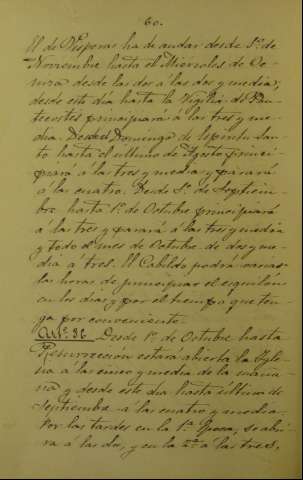 60.
El de Vísperas ha de andar desde 1º. de
Noviembre hasta el Miércoles de Ce-
niza desde las dos á las dos y media;
desde este dia hasta la Vigilia de Pen-
tecostes principiará á las tres y me-
dia. Desde el Domingo de Espíritu San-
to hasta el último de Agosto princi-
piará á las tres y media y parará
á las cuatro. Desde 1º. de Septiem-
bre hasta 1º. de Octubre principiará
á las tres y parará á las tres y media
y todo el mes de Octubre de dos y me-
dia á tres. El Cabildo podrá variar
las horas de principiar el esquilón
en los dias y por el tiempo que ten-
ga por conveniente.
Artº. 96. Desde 1º. de Octubre hasta
Resurrección estará abierta la Igle-
sia á las cinco y media de la maña-
na y desde este dia hasta último de
Septiembre á las cuatro y media.
Por las tardes en la 1ª. época, se abri-
rá á las dos, y en la 2ª. á las tres,